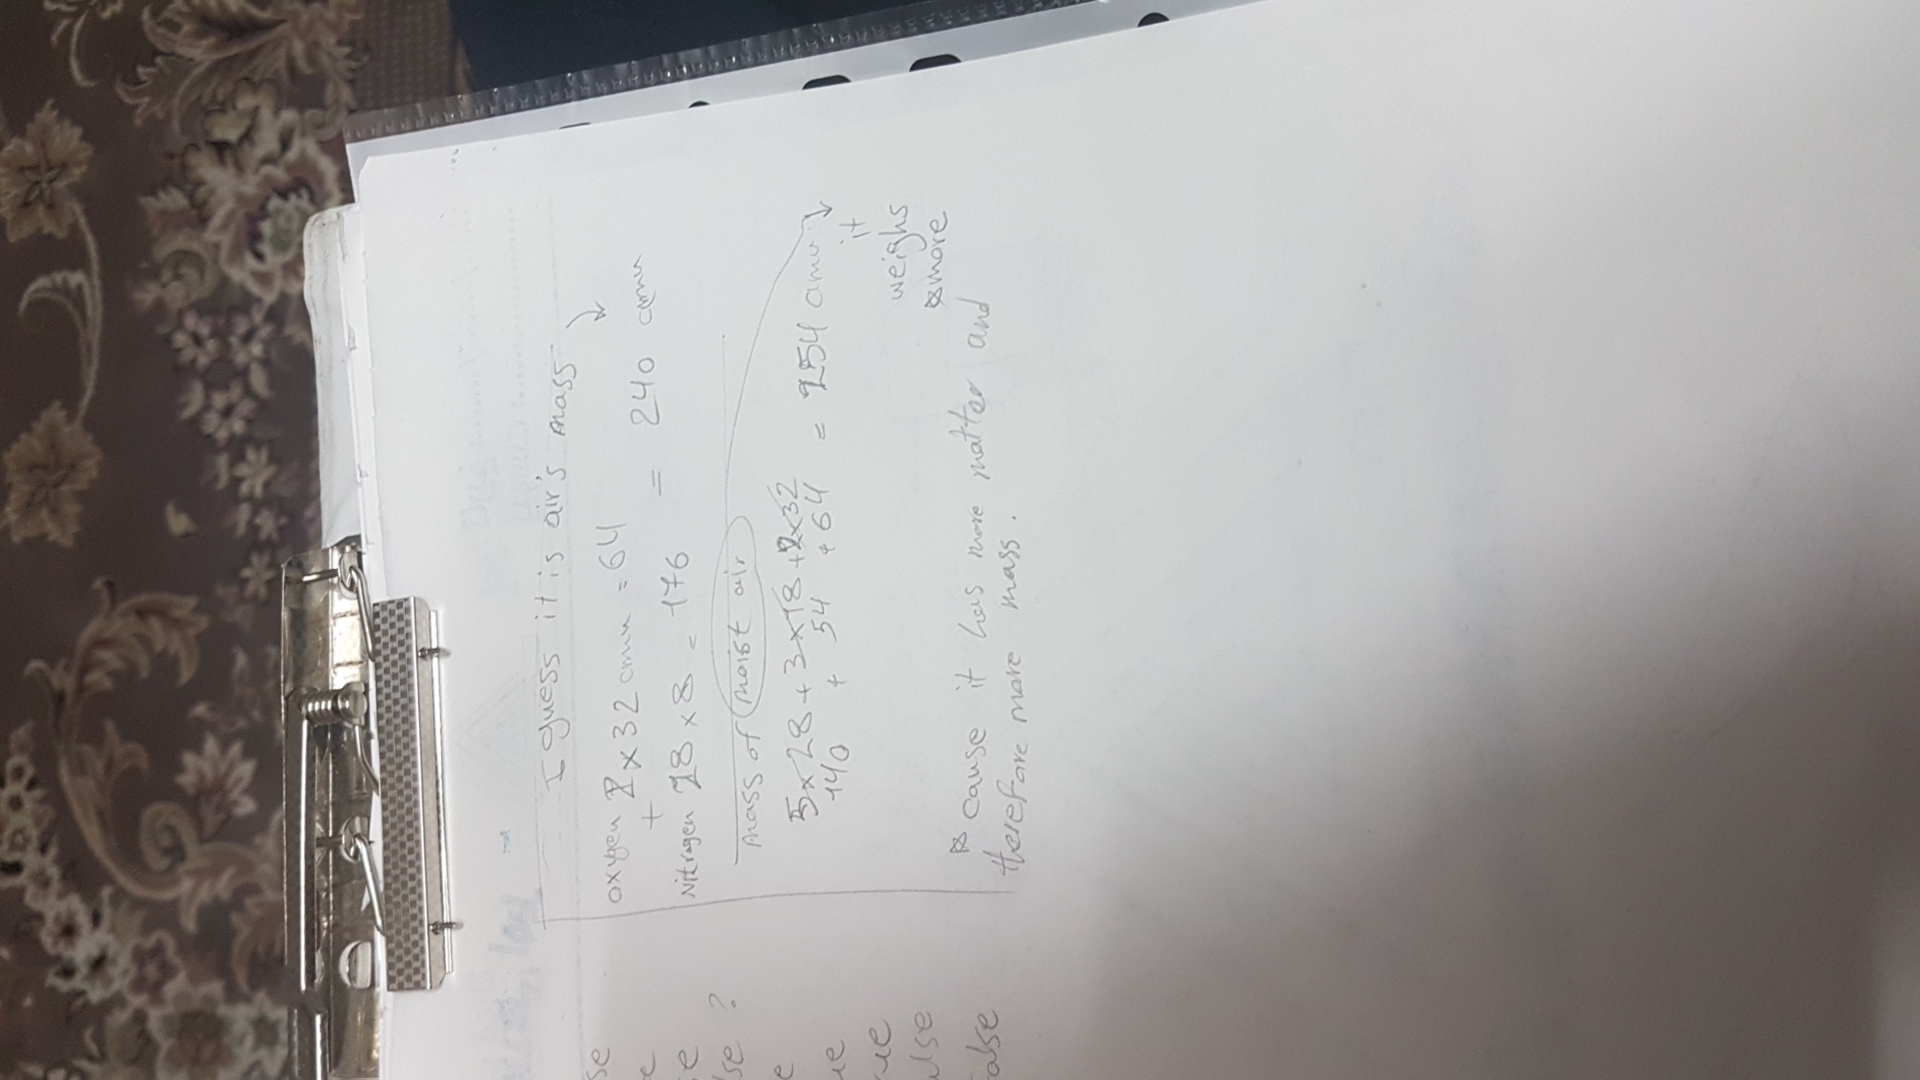 I guess it is air's mass
oxygen 2 x 32 amu = 64
+ = 240 amu
Nitrogen 28 x 8 = 176
mass of moist air
5 x 28 + 3 x 18 + 2 x 32
140 + 54 + 64 = 254 amu
it
weighs
more
cause it has more matter and
therefore more mass.
se
se
lse ?
e
ue
ue
alse
false